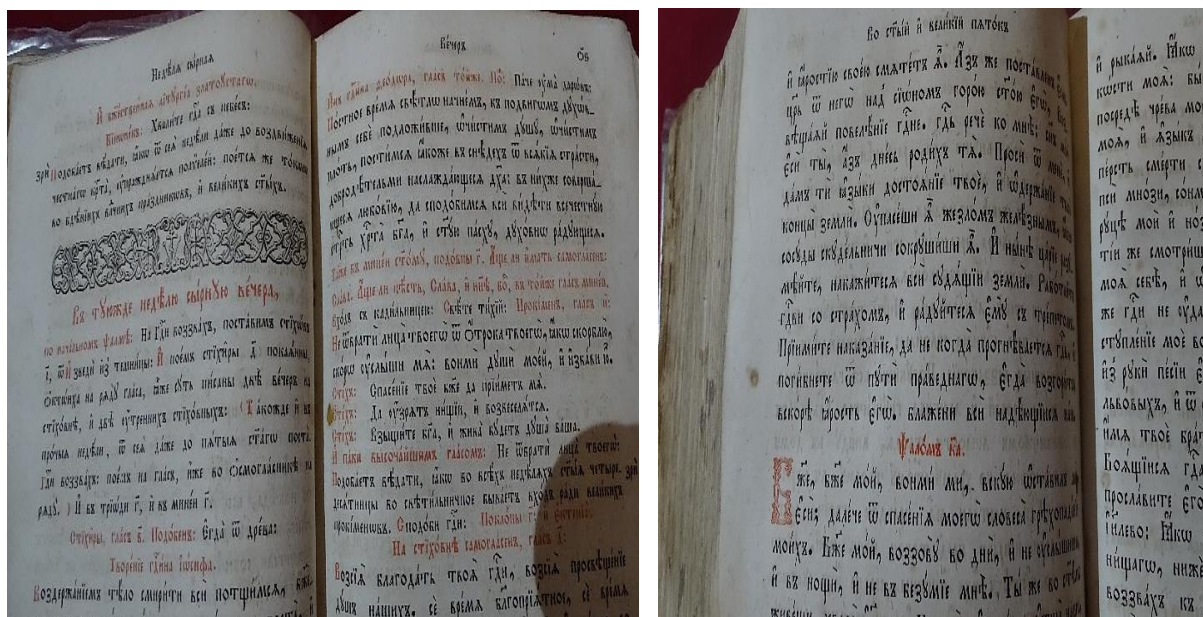 Недѣ́лѧ сы́рнаѧ
И҆ бж҃е́ственнаѧ лїтꙋргі́а златоꙋ́стагѡ.
Хвали́те гдⷭ҇а съ небе́съ:
зрѝ Подоба́етъ вѣ́дати, ꙗ҆́кѡ ѿ сеѧ̀ недѣ́ли да́же до воздви́женїѧ
честна́гѡ крⷭ҇та̀, ᲂу҆пражнѧ́етсѧ полѷеле́й: пое́тсѧ же то́кмѡ
во бдѣ́нїихъ пра́здникѡвъ, и҆ вели́кихъ ст҃ы́хъ.
Въ недѣ́лю сы́рнꙋю ве́чера,
по нача́льномъ ѱалмѣ̀: На Гдⷭ҇и воззва́хъ, поста́вимъ стїхѡ́въ
і҃, ѿ И҆зведѝ и҆з̾ темни́цы: И҆ пое́мъ стїхи̑ры д҃ покаѧ̑нны,
на рѧдꙋ̀ гла́са, ꙗ҆̀же сꙋ́ть пи̑саны днѐ ве́черъ на
стїхо́внѣ, и҆ двѣ̀ ᲂу҆́тренихъ стїхо́вныхъ: Та́кожде и҆ въ
про́чыѧ недѣ̑ли, ѿ сеѧ̀ да́же до пѧ́тыѧ ст҃а́гѡ поста̀.
Гдⷭ҇и воззва́хъ: пое́мъ на гла́съ, и҆́же во ѻ҆смогла́сникѣ на
рѧдꙋ̀. И҆ въ трїѡ́ди г҃, и҆ въ мине́и г҃.
Стїхи̑ры, гла́съ в҃. Подо́бенъ: Е҆гда̀ ѿ дре́ва:
Творе́нїе господи́на І҆ѡ́сифа.
Воздержа́нїемъ тѣ́ло смири́ти всѝ потщи́мсѧ,
Ве́черъ
о҃ѕ
И҆́нъ господи́на ѳео́дѡра, гла́съ то́йже. По́: Па́че ᲂу҆ма̀ дарѡ́въ:
По́стное вре́мѧ свѣ́тлѡ начне́мъ, къ по́двигѡмъ дꙋхѡ́в-
нымъ себѐ подложи́вше, ѡ҆чи́стимъ дꙋ́шꙋ, ѡ҆чи́стимъ
пло́ть, пости́мсѧ ꙗ҆́коже въ снѣ́дехъ ѿ всѧ́кїѧ стра́сти,
добродѣ́тельми наслажда́ющесѧ дꙋ́ха: въ ни́хже соверша́-
ющесѧ любо́вїю, да сподо́бимсѧ всѝ ви́дѣти всечестнꙋ́ю
стрⷭ҇ть хрⷭ҇та̀ бг҃а, и҆ ст҃ꙋ́ю па́схꙋ, дꙋхо́внѡ ра́дꙋющесѧ.
Та́же въ мине́и ст҃о́мꙋ, подѡ́бны г҃. А҆́ще ли и҆́мать самогла́сенъ:
Сла́ва: А҆́ще ли нѣ́сть, Сла́ва, и҆ ны́нѣ, бо҃, въ то́йже гла́съ мине́и,
Вхо́дъ съ кади́льницею: Свѣ́те ти́хїй: Прокі́менъ, гла́съ и҃:
Не ѿвратѝ лица̀ твоегѡ̀ ѿ ѻ҆́трока твоегѡ̀, ꙗ҆́кѡ скорблю̀,
ско́рѡ ᲂу҆слы́ши мѧ̀: вонмѝ дꙋшѝ мое́й, и҆ и҆зба́ви ю҆̀.
Сті́хъ: Спасе́нїе твоѐ бж҃е да прїи́метъ мѧ̀.
Сті́хъ: Да ᲂу҆́зрѧтъ ни́щїи, и҆ возвеселѧ́тсѧ.
Сті́хъ: Взыщи́те бг҃а, и҆ жива̀ бꙋ́детъ дꙋша̀ ва́ша.
И҆ па́ки высоча́йшимъ гла́сомъ: Не ѿвратѝ лица̀ твоегѡ̀:
Подоба́етъ вѣ́дати, ꙗ҆́кѡ во всѣ́хъ недѣ́лѧхъ ст҃ы́ѧ четыри- зрѝ
десѧ́тницы во свѣти́льничное быва́етъ вхо́дъ ра́ди вели́кихъ
прокі́менѡвъ. Сподо́би гдⷭ҇и: Покло́ны г҃: и҆ є҆ктенїѧ̀.
На стїхо́внѣ самогла́сенъ, гла́съ д҃:
Возсїѧ̀ благода́ть твоѧ̀ гдⷭ҇и, возсїѧ̀ просвѣще́нїе
дꙋ́шъ на́шихъ. сѐ вре́мѧ благопрїѧ́тное, сѐ вре́мѧ
Во ст҃ы́й и҆ вели́кїй пѧто́къ
и҆ ꙗ҆́ростїю свое́ю смѧте́тъ ѧ҆̀. А҆́зъ же поста́вленъ
цр҃ь ѿ негѡ̀ над̾ сїѡ́номъ горо́ю ст҃о́ю є҆гѡ̀,
вѣща́ѧй повелѣ́нїе гдⷭ҇не. Гдⷭ҇ь речѐ ко мнѣ̀: сн҃ъ мо́й
є҆сѝ ты̀, а҆́зъ дне́сь роди́хъ тѧ̀. Просѝ ѿ менє̀, и҆
да́мъ тѝ ꙗ҆зы́ки достоѧ́нїе твоѐ, и҆ ѡ҆держа́нїе твоѐ
концы̀ землѝ. Оу҆пасе́ши ѧ҆̀ жезло́мъ желѣ́знымъ,
сосꙋ́ды скꙋде́льничи сокрꙋши́ши ѧ҆̀. И҆ ны́нѣ ца́рїе разꙋ-
мѣ́йте, накажи́тесѧ всѝ сꙋдѧ́щїи землѝ. Рабо́тайте
гдⷭ҇еви со стра́хомъ, и҆ ра́дꙋйтесѧ є҆мꙋ̀ съ тре́петомъ.
Прїими́те наказа́нїе, да не когда̀ прогнѣ́ваетсѧ гдⷭ҇ь, и҆
поги́бнете ѿ пꙋтѝ пра́веднагѡ, є҆гда̀ возгори́тсѧ
вско́рѣ ꙗ҆́рость є҆гѡ̀, блаже́ни всѝ надѣ́ющїисѧ нань.
Ѱало́мъ к҃а.
Бж҃е, бж҃е мо́й, вонмѝ мѝ, вскꙋ́ю ѡ҆ста́вилъ мѧ̀
є҆сѝ; дале́че ѿ спасе́нїѧ моегѡ̀ словеса̀ грѣхопаде́нїй
мои́хъ. Бж҃е мо́й, воззовꙋ̀ во днѝ, и҆ не ᲂу҆слы́шиши
и҆ въ нощѝ, и҆ не въ безꙋ́мїе мнѣ̀. Ты́ же во ст҃ѣ́мъ
и҆ рыка́ѧй. Ꙗ҆́кѡ
кѡ́сти моѧ̑: бы́
посредѣ̀ чре́ва мо
моѧ̀, и҆ ꙗ҆зы́къ
пе́рсть сме́рти
псѝ мно́зи, со́нм
рꙋ́цѣ моѝ и҆ но́
ті́и же смотри́ш
моѧ̑ себѣ̀, и҆
же гдⷭ҇и не ᲂу҆да
стꙋпле́нїе моѐ во
и҆з̾ рꙋкѝ пе́сїи є҆
льво́выхъ, и҆ ѿ
и҆́мѧ твоѐ бра́т
Боѧ́щїисѧ гдⷭ҇а
просла́вите є҆
і҆и҃лево: Ꙗ҆́кѡ
ни́щагѡ, ниже́
воззва́хъ къ